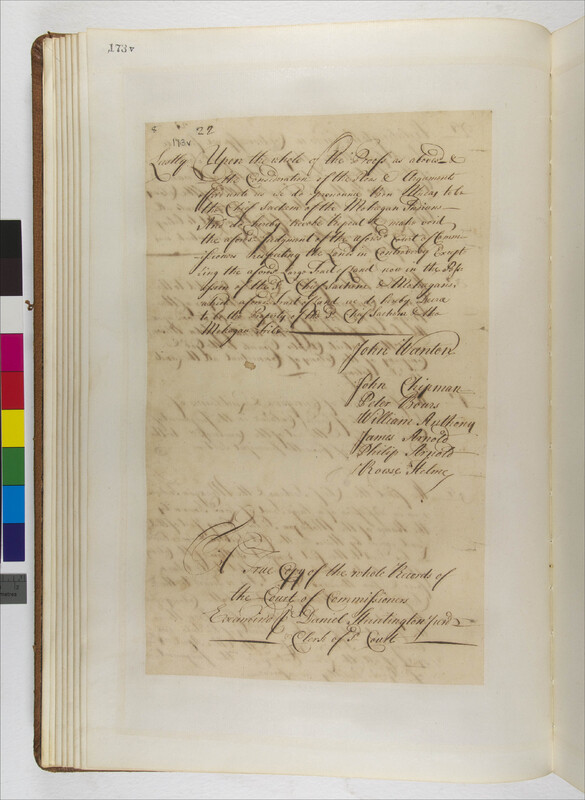 173v
22
173v
Lastly Upon the whole of the Proofs as above &
the Consideration of the Pleas & Arguments
we do pronounce Ben Uncas to be
the Chief Sachem of the Mohegan Indians
And do hereby Repeal & make void
the aforesd. Judgment of the aforesd. Court of Commi-
ssioners Respecting the Land in Controversy Excep
ting the aforesd. Large Tract of Land now in the Poss
ession of the sd. Chief Sachem & Mohegans,
which aforesd. tract of Land we do hereby
to be the Property of the sd. Chief Sachem & the
Mohegan Tribe
John Wanton
John Chipman
Peter Bours
William Anthony
James Arnold
Philip Arnold
Rowse Helme
A True Copy of the whole Records of
the Court of Commissioners
Examined P Daniel Huntington Junr
Clerk of sd. Court